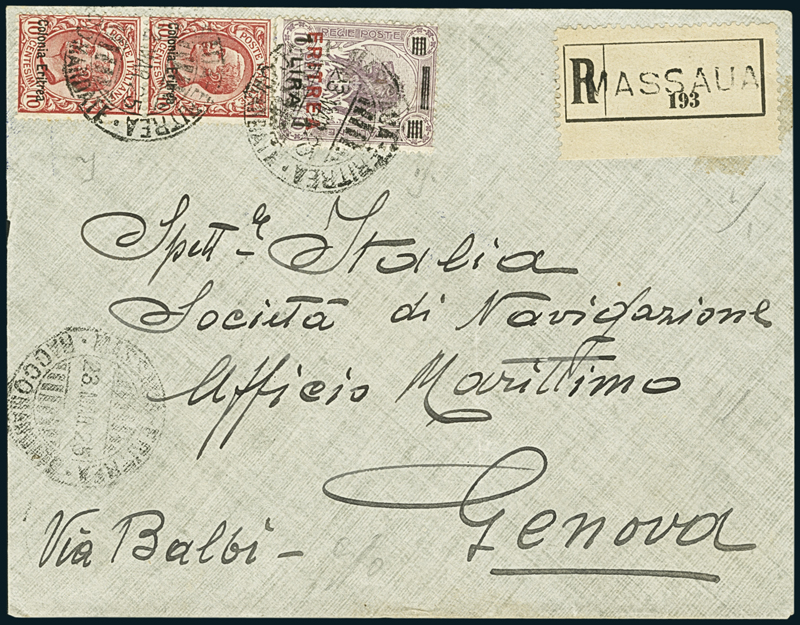 POSTE ITALIANE
Colonia Eritrea
10 CENTESIMI 10
POSTE
Colonia Eritrea
10 CENTESIMI 10
REGIE POSTE
ERITREA
LIRA
R MASSAUA
193
MASSAUA · ERITREA
Spett-le Italia
Società di Navigazione
Ufficio Marittimo
Genova
Via Balbi -
MASSAUA ERITREA
28 MAR 25
RACCOMANDATE
c/o